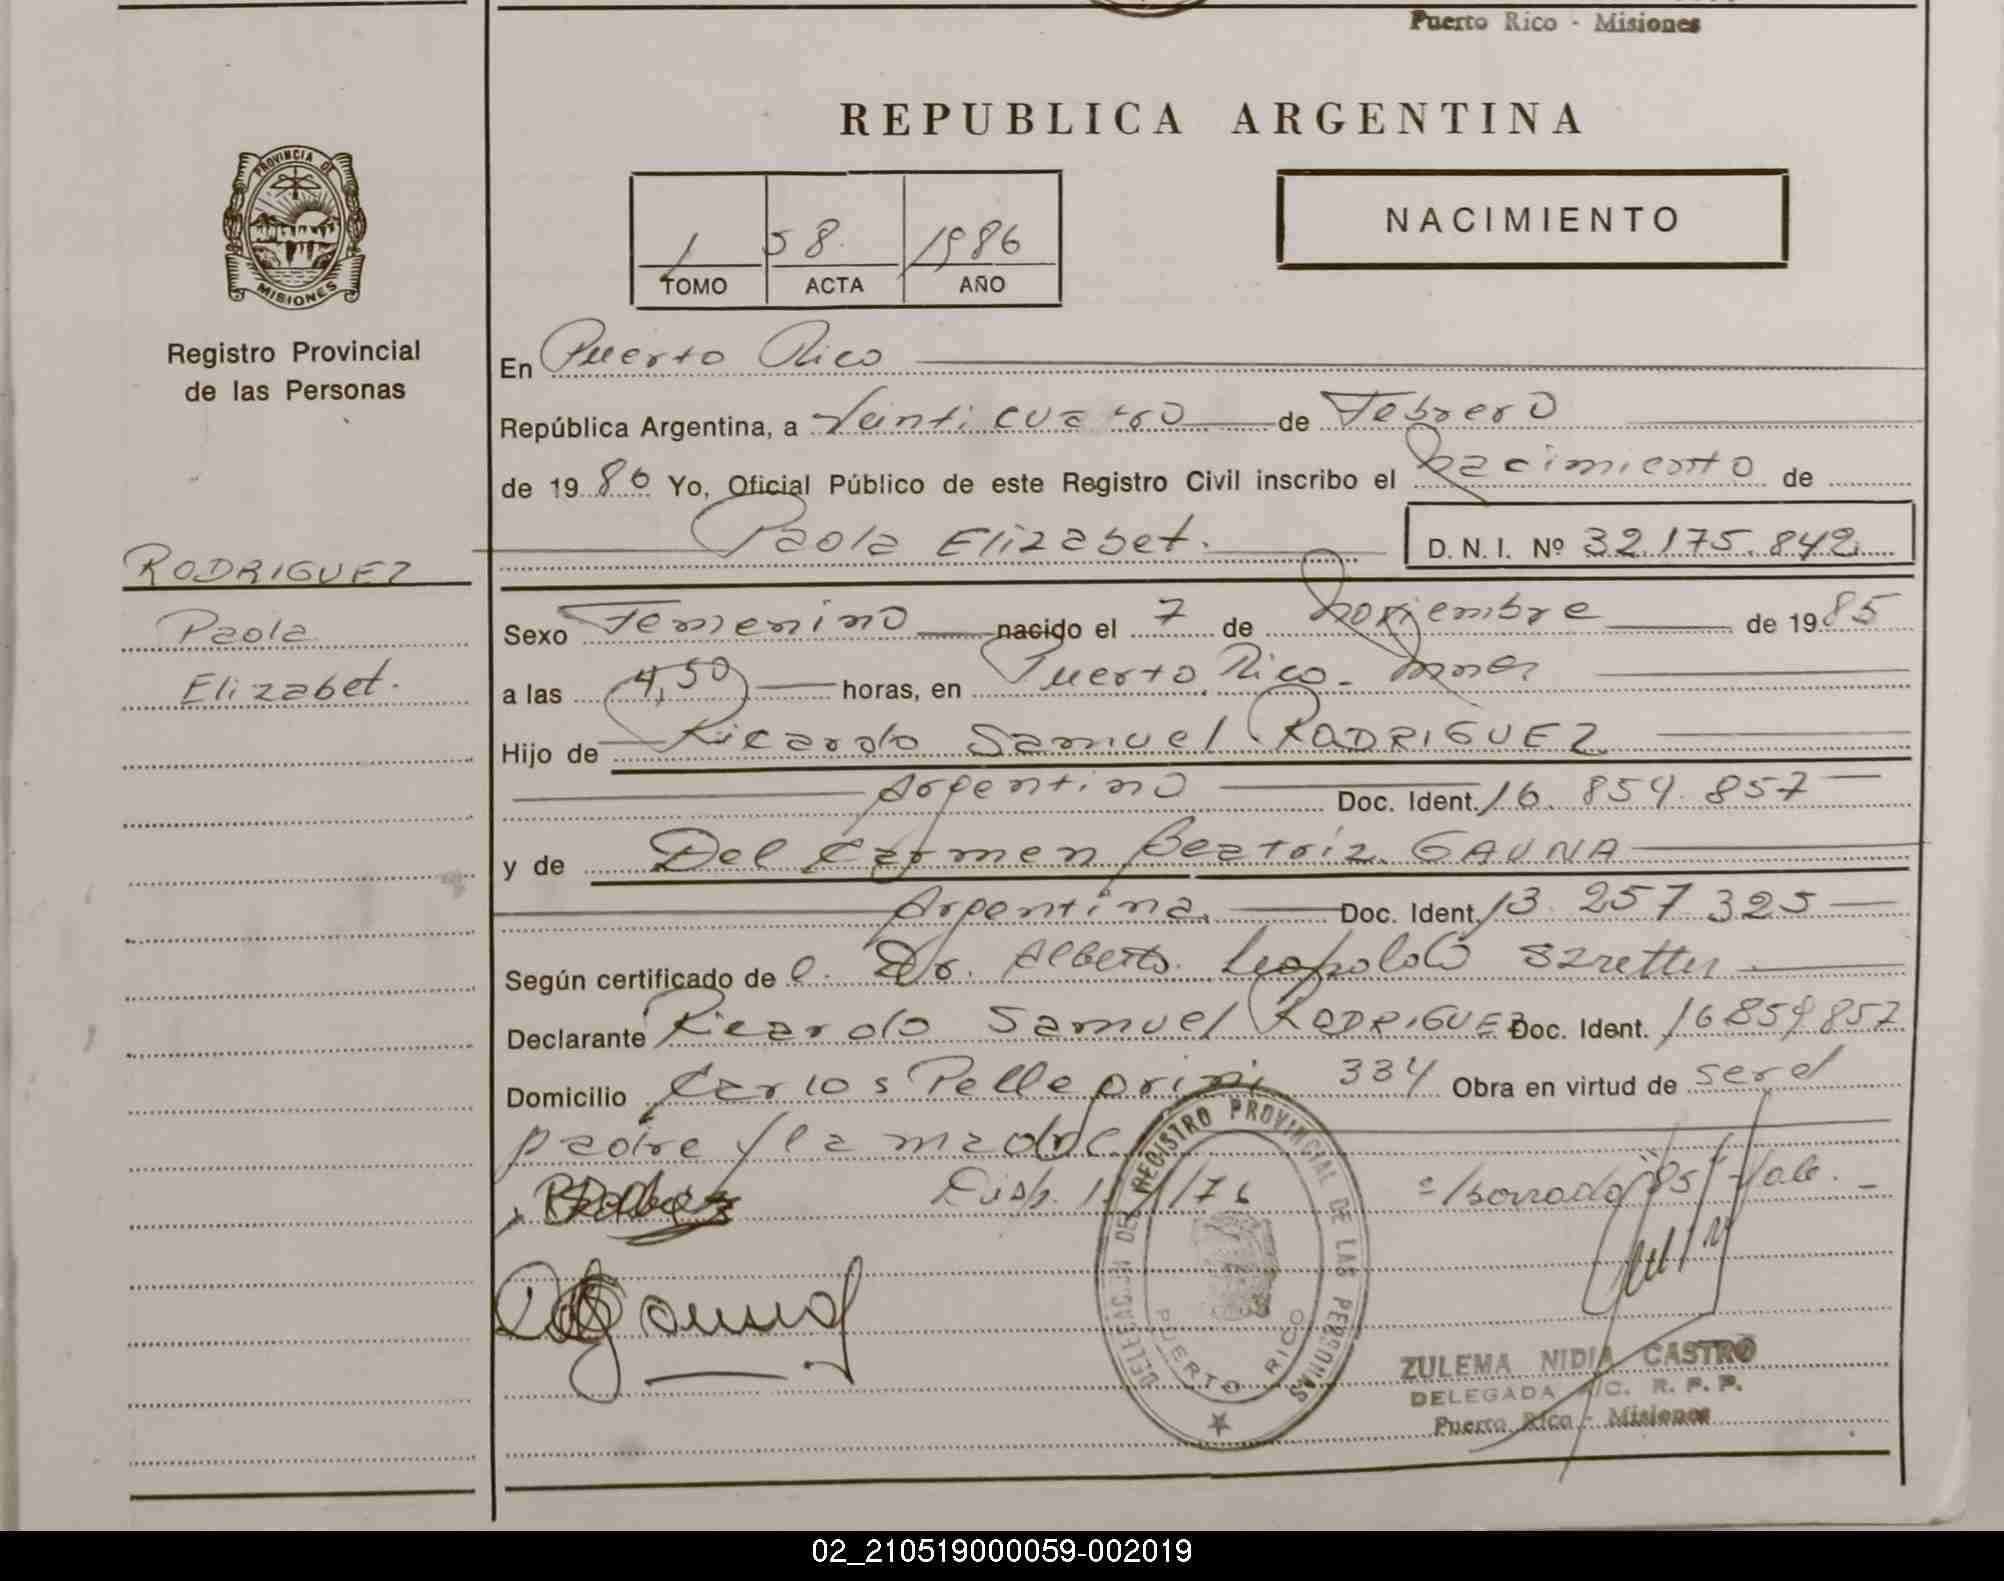 Puerto Rico - Misiones
REPUBLICA ARGENTINA
PROVINCIA DE
MISIONES
Registro Provincial
de las Personas
1 58 1986
TOMO ACTA AÑO
NACIMIENTO
En Puerto Rico
República Argentina, a Veinticuatro de Febrero
de 19 86 Yo, Oficial Público de este Registro Civil inscribo el nacimiento de
Paola Elizabet. D. N. I. Nº 32.175.842
RODRIGUEZ
Paola
Elizabet.
Sexo Femenino nacido el 7 de noviembre de 19 85
a las 4,50 horas, en Puerto Rico - Mnes
Hijo de Ricardo Samuel RODRIGUEZ
Argentino Doc. Ident. 16.859.857
y de Del Carmen Beatriz GAUNA
Argentina Doc. Ident. 13.257.325
Según certificado de l. Dr. Alberto Leopoldo Szretter
Declarante Ricardo Samuel RODRIGUEZ Doc. Ident. 16859857
Domicilio Carlos Pellegrini 334 Obra en virtud de ser el
padre y la madre
Disp. /76 borrado "85" Vale. -
DELEGACION DEL REGISTRO PROVINCIAL DE LAS PERSONAS
PUERTO RICO
ZULEMA NIDIA CASTRO
DELEGADA A/C. R. P. P.
Puerto Rico - Misiones
02_210519000059-002019